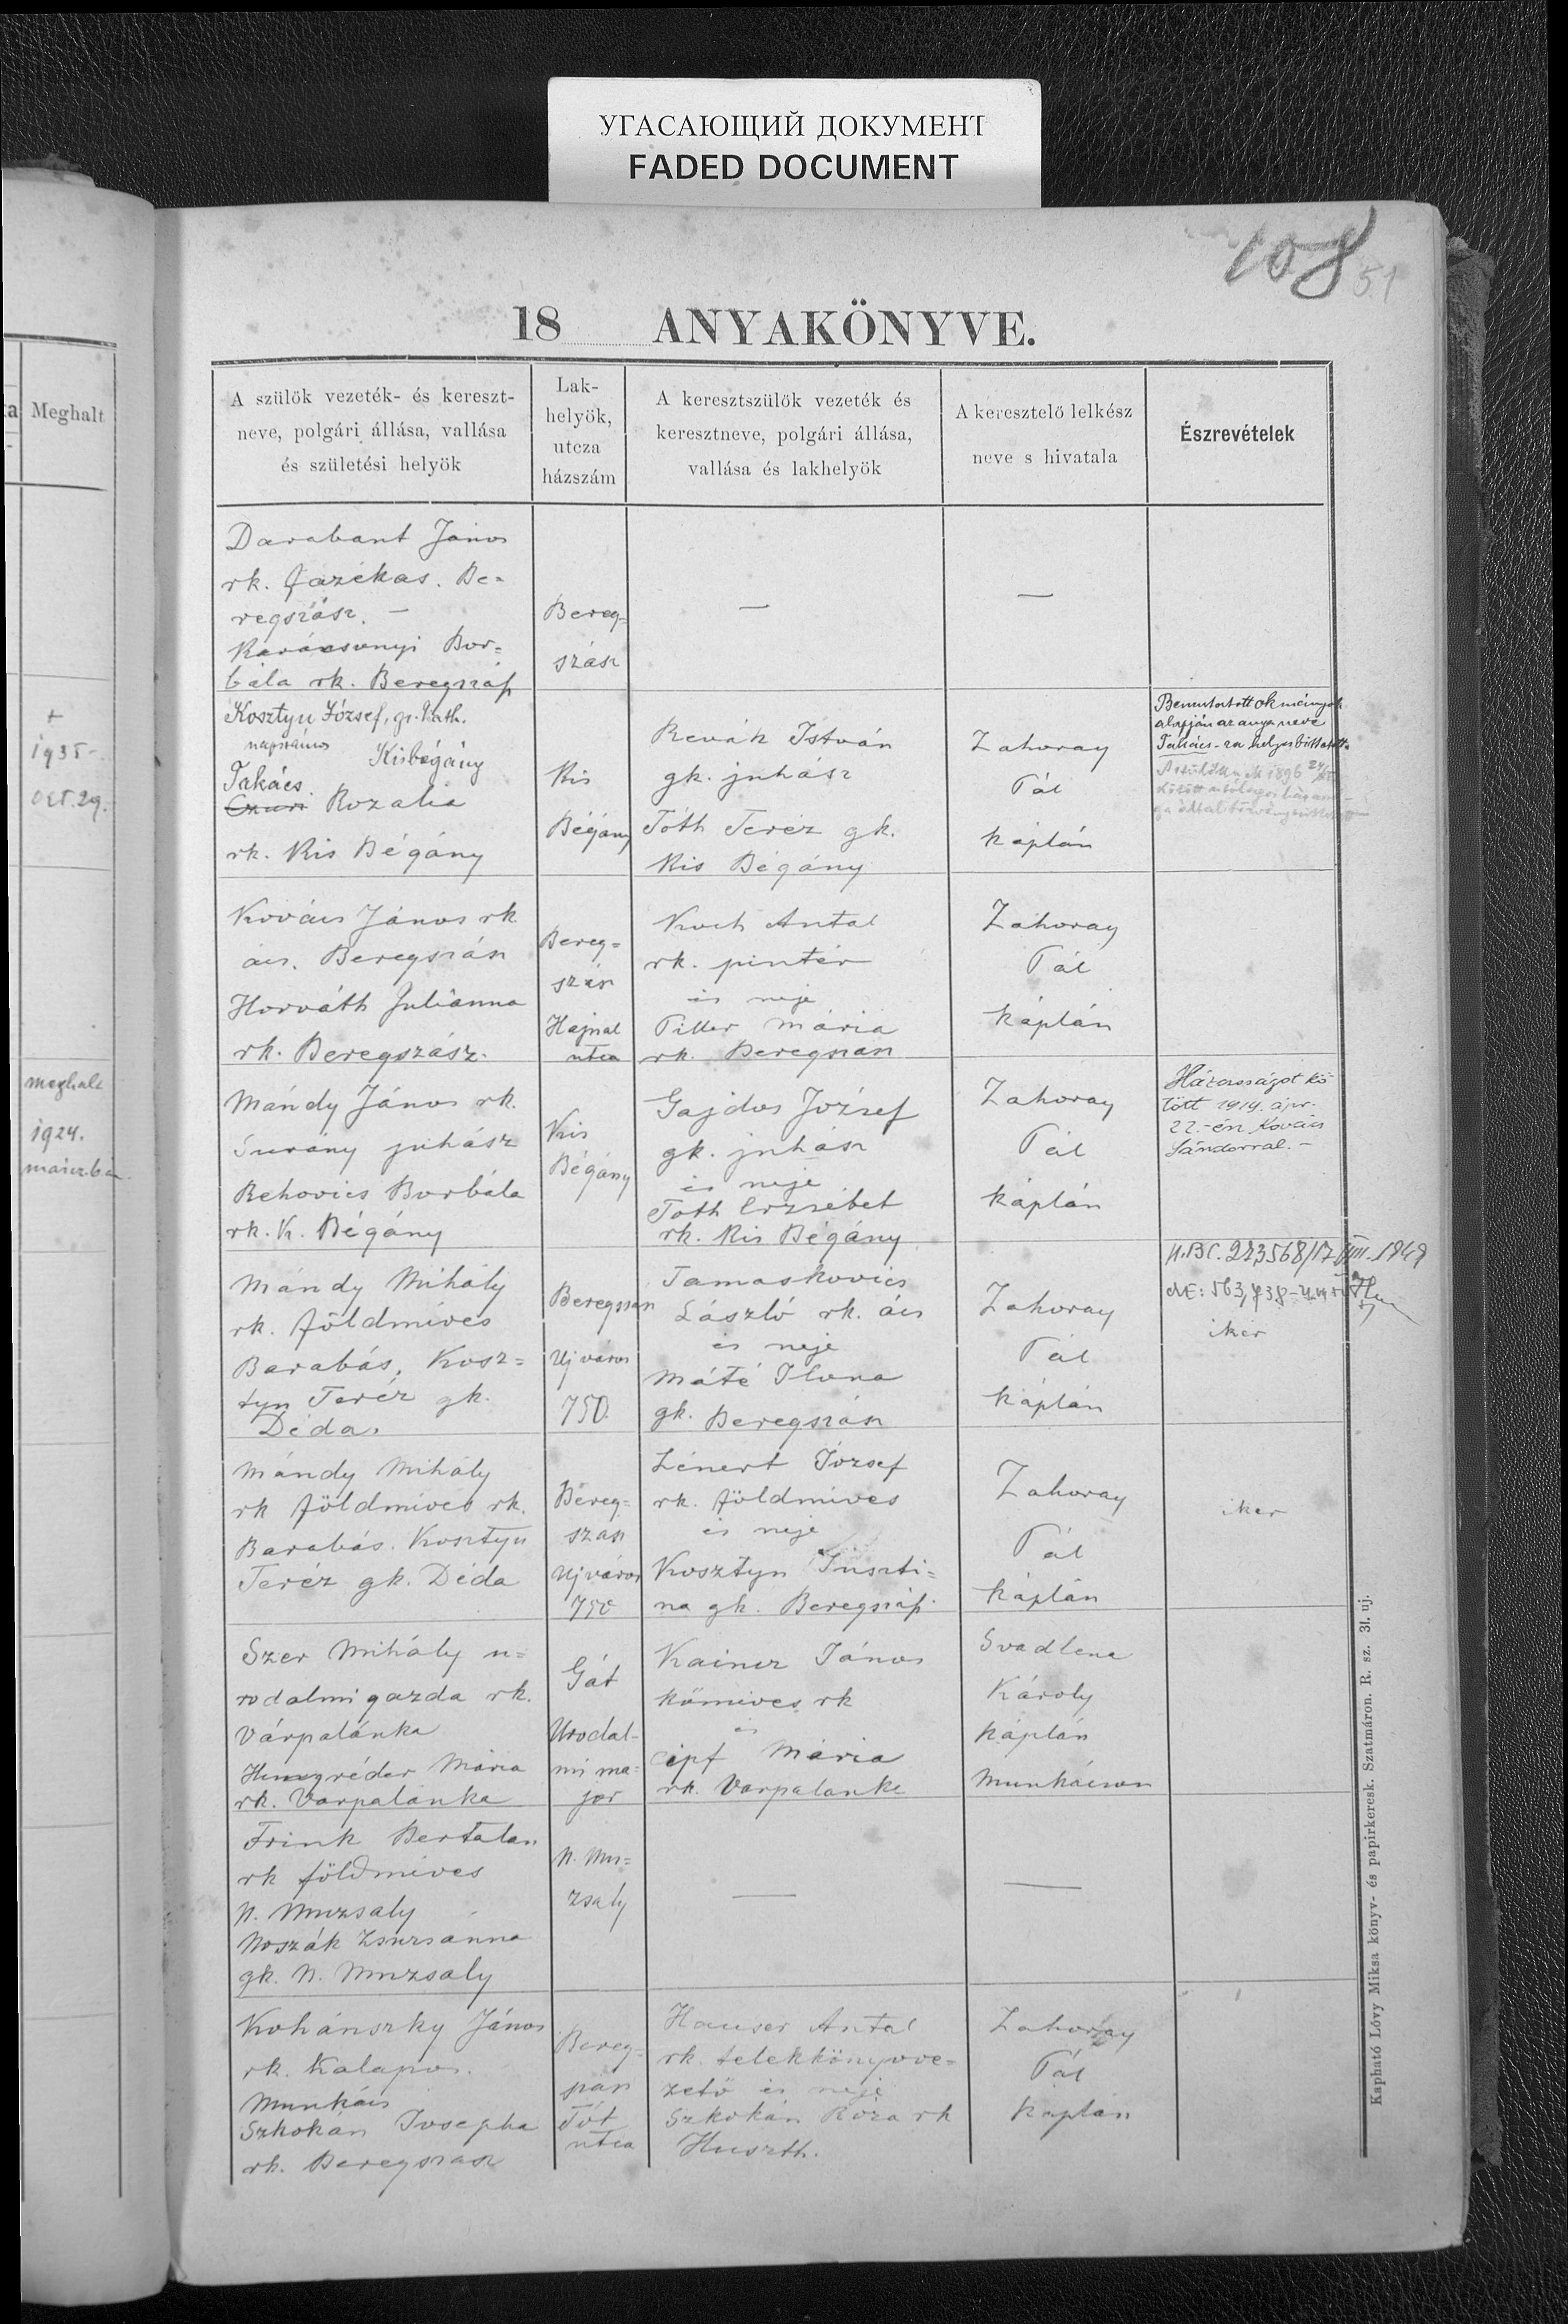 УГАСАЮЩИЙ ДОКУМЕНТ
FADED DOCUMENT
108
51
18 ANYAKÖNYVE.
Meghalt
+
1935-
oct. 29.
meghalt
1924.
márcz.ba
A szülők vezeték- és kereszt-
neve, polgári állása, vallása
és születési helyök
Lak-
helyök,
utcza
házszám
A keresztszülők vezeték és
keresztneve, polgári állása,
vallása és lakhelyök
A keresztelő lelkész
neve s hivatala
Észrevételek
Darabant János
rk. fazekas. Be-
regszász. –
Karácsonyi Bor-
bála rk. Beregszász
Bereg-
szász
—
—
Kosztyu József, gr. kath.
napszámos
Kisbégány
Takács
Rozalia
rk. Kis Bégány
Kis
Bégány
Revák István
gk. juhász
Tóth Teréz gk.
Kis Bégány
Zahoray
Pál
káplán
Bemutatott okmányok
alapján az anya neve
Takács-ra helyesbittetett
Kovács János rk
ács. Beregszász
Horváth Juliánna
rk. Beregszász.
Bereg-
szász
Hajnal
utca
Koch Antal
rk. pintér
és neje
Piller Mária
rk. Beregszász
Zahoray
Pál
káplán
Mándy János rk.
Surány juhász
Rehovics Borbála
rk. K. Bégány
Kis
Bégány
Gajdos József
gk. juhász
és neje
Tóth Erzsébet
rk. Kis Bégány
Zahoray
Pál
káplán
Házasságot kö-
tött 1919. ápr.
22.-én Kovács
Sándorral. –
Mándy Mihály
rk. földmives
Barabás, Kosz-
tyu Teréz gk.
Déda.
Beregszász
Ujváros
750.
Tamaskovics
László rk. ács
és neje
Máté Ilona
gk. Beregszász
Zahoray
Pál
káplán
iker
Mándy Mihály
rk földmives rk.
Barabás. Kosztyu
Teréz gk. Déda
Bereg-
szász
Ujváros
750
Lénert József
rk. földmives
és neje
Kosztyu Juszti-
na gk. Beregszász
Zahoray
Pál
káplán
iker
Szer Mihály u-
rodalmi gazda rk.
Várpalánka
Mária
rk. Várpalánka
Gát
Urodal-
mi ma-
jor
Kainer János
kőmives rk
és
Cipf Mária
rk. Várpalanka
Svadlena
Károly
káplán
Munkácson
Frink Bertalan
rk földmives
N. Muzsaly
Noszák Zsuzsánna
gk. N. Muzsaly
N. Mu-
zsaly
—
—
Kohánszky János
rk. kalapos.
Munkács
Szkokán Josepha
rk. Beregszász
Bereg-
szász
Tót
utca
Hauser Antal
rk. telekkönyvve-
zető és neje
Szkokán Róza rk
Huszth.
Zahoray
Pál
káplán
Kapható Lövy Miksa könyv- és papirkeresk. Szatmáron. R. sz. 3l. uj.